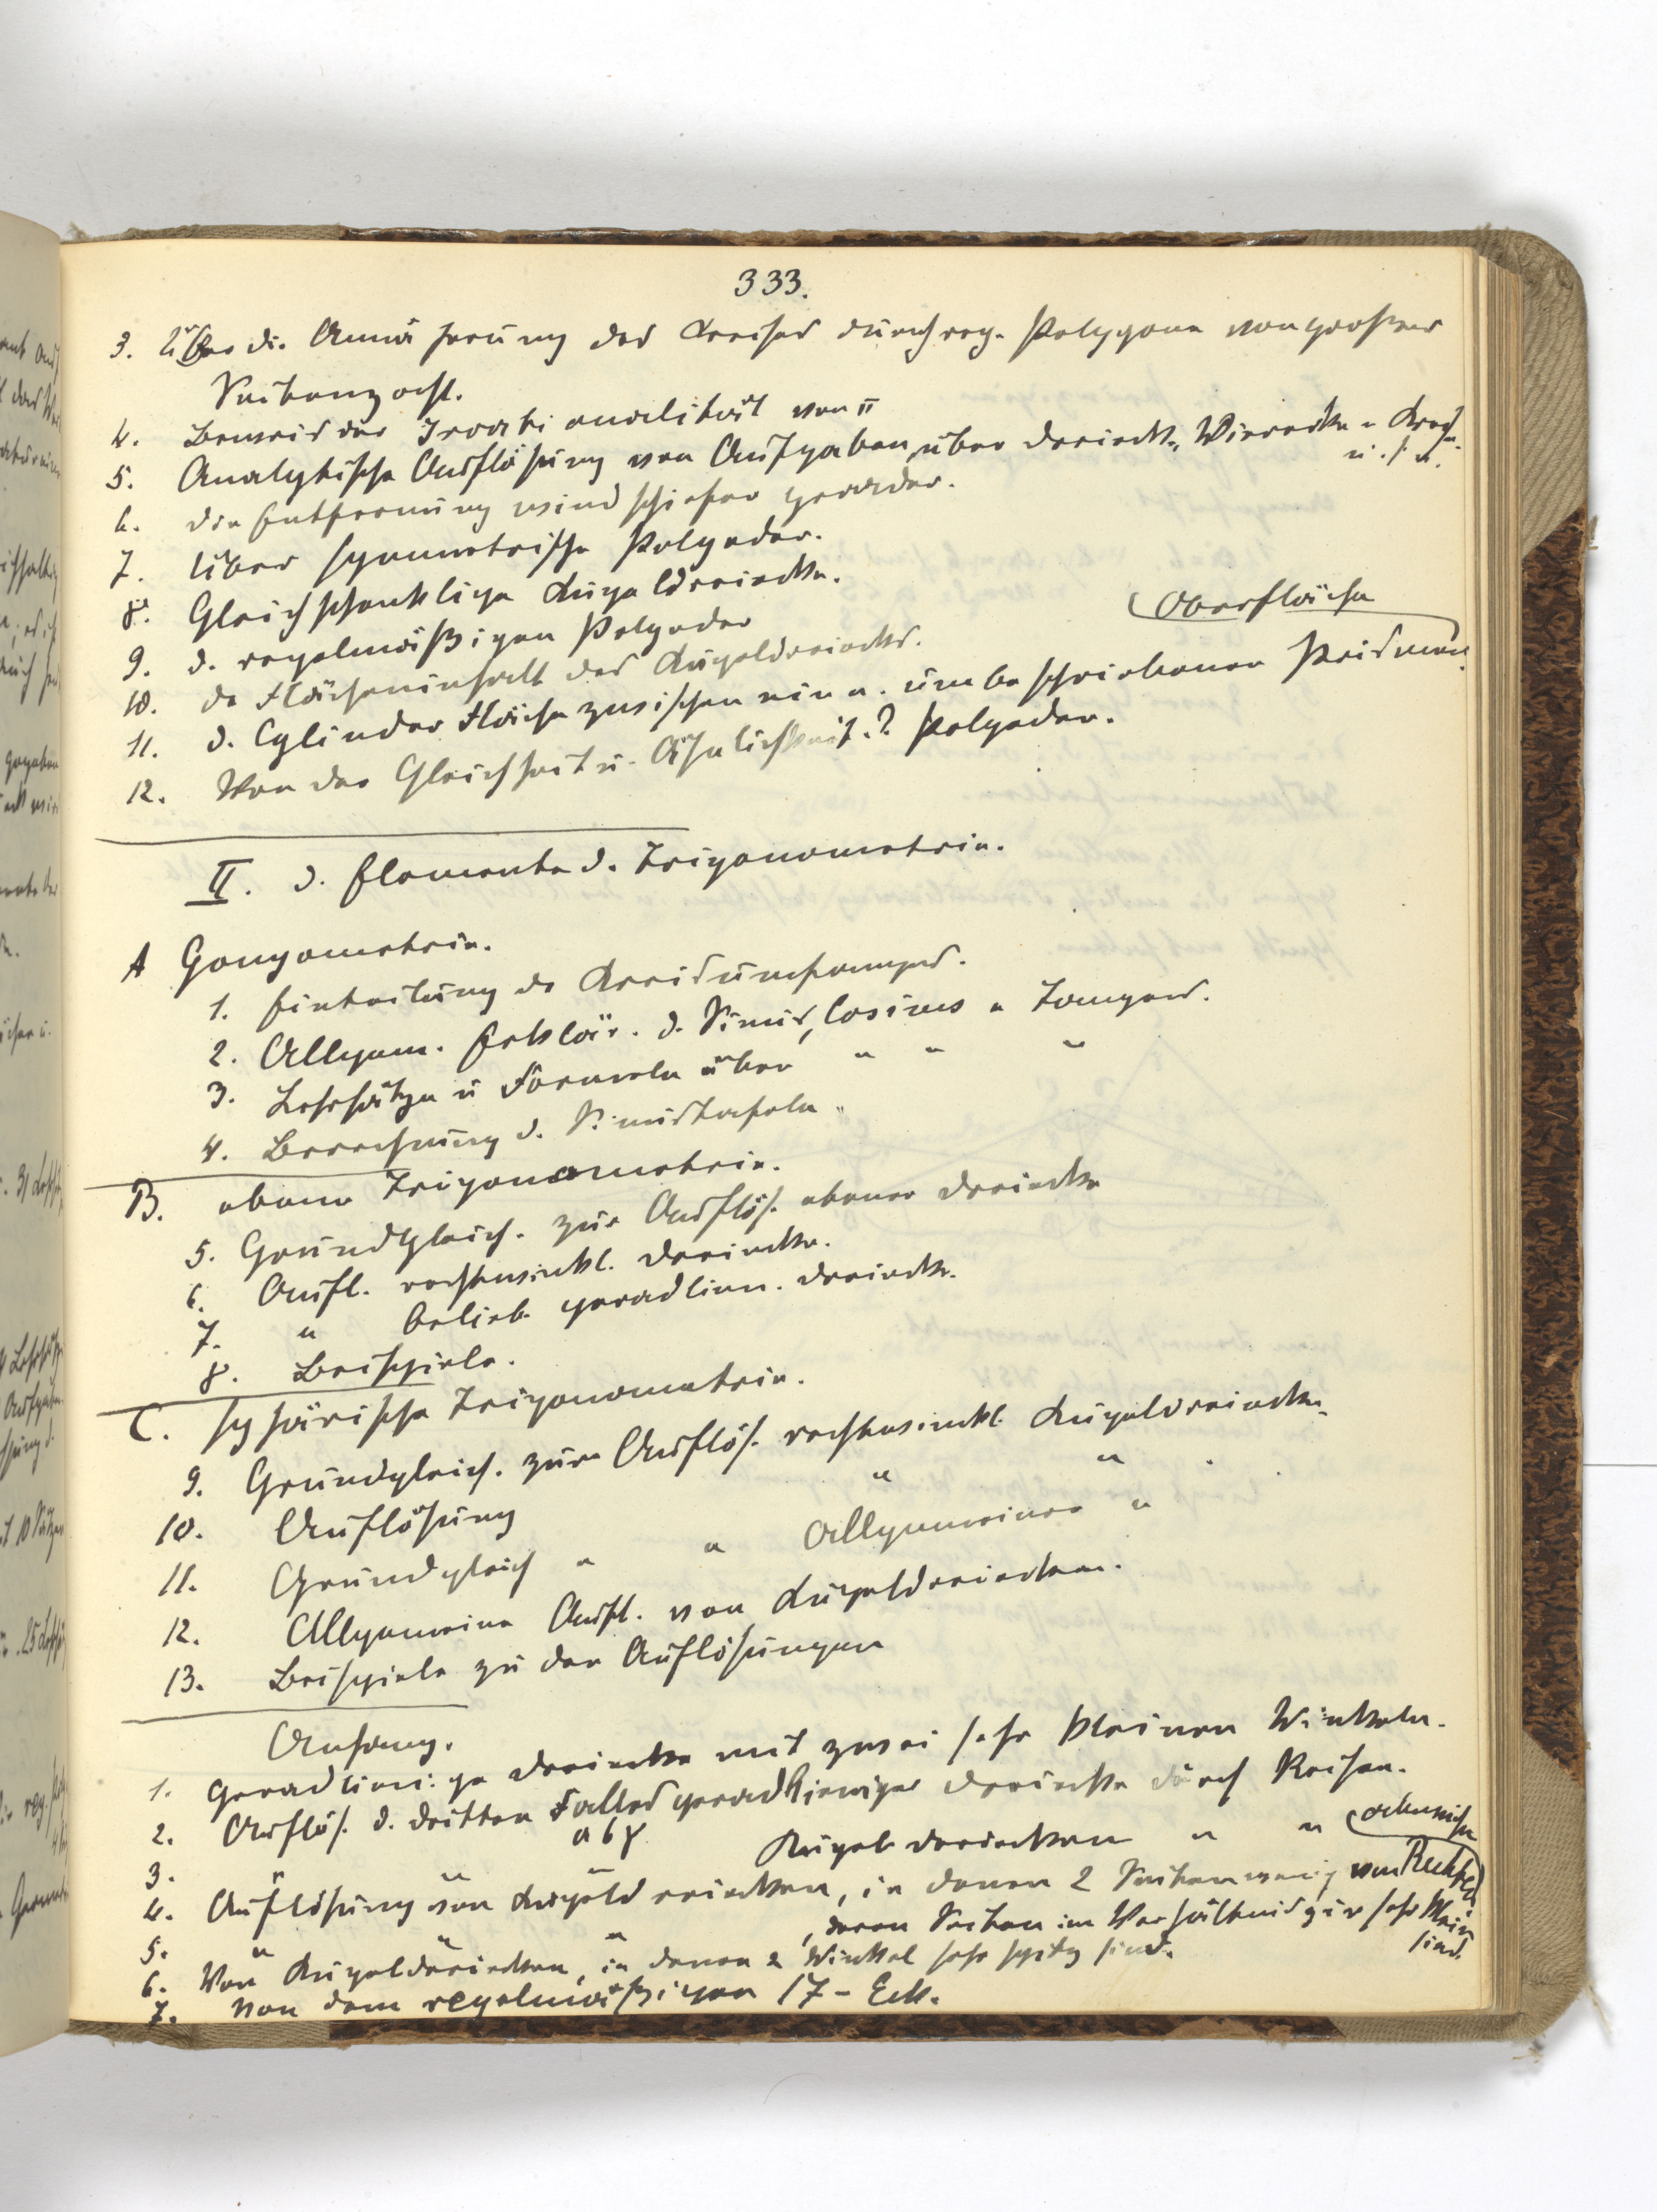 333.
3. Über di. Annäherung des Kreises durch reg. Polygone von großer
Seitenzahl.
4. Beweis der Irrationalität von π
5. Analytische Auflösung von Aufgaben über Dreiecke, Vierecke u Kreis
u. s. w.
6. Die Entfernung windschiefer Gerader.
7. Über symmetrische Polyeder.
8. Gleichschenklige Kugeldreiecke.
9. d. regelmäßigen Polyeder
10. de Flächeninhalt des Kugeldreiecks.
Oberfläche
11. d. Cylinder Fläche zwischen ein u. umbeschriebener Prismen.
12. Von der Gleichheit u. Ähnlichkeit.? Polyeder.
II. d. Elemente d. Trigonometrie.
A Gonyometrie.
1. Einteilung de Kreisumfanges.
2. Allgem. Erklär. d. Sinus, Cosinus u Tangens.
3. Lehrsätze u Formeln über " " "
4. Berechnung d. Sinustafeln.
B. ebene Trigonometrie.
5. Grundgleich. zur Auflös. ebener Dreiecke
6. Aufl. rechtwinkl. Dreiecke.
7. " belieb. geradlien. Dreiecke.
8. Beispiele.
C. sphärische Trigonometrie.
9. Grundgleich. zur Auflös. rechtwinkl. Kugeldreiecke.
10. Auflösung " "
11. Grundgleich " " Allgemeiner "
12. Allgemeine Aufl. von Kugeldreiecken.
13. Beispiele zu den Auflösungen
Anhang.
1. Geradlinige Dreiecke mit zwei sehr kleinen Winkeln.
2. Auflös. d. dritten Falles geradliniger Dreiecke durch Reihen.
a b γ
3. " " " Kugeldreiecken " "
4. Auflösung von Kugeldreiecken, in denen 2 Seiten wenig von Rechten
abweichen
5. " " " , deren Seiten im Verhältnis zur sehr klein
sind.
6. Von Kugeldreiecken, in denen 2 Winkel sehr spitz sind.
7. Von dem regelmäßigen 17-Eck.